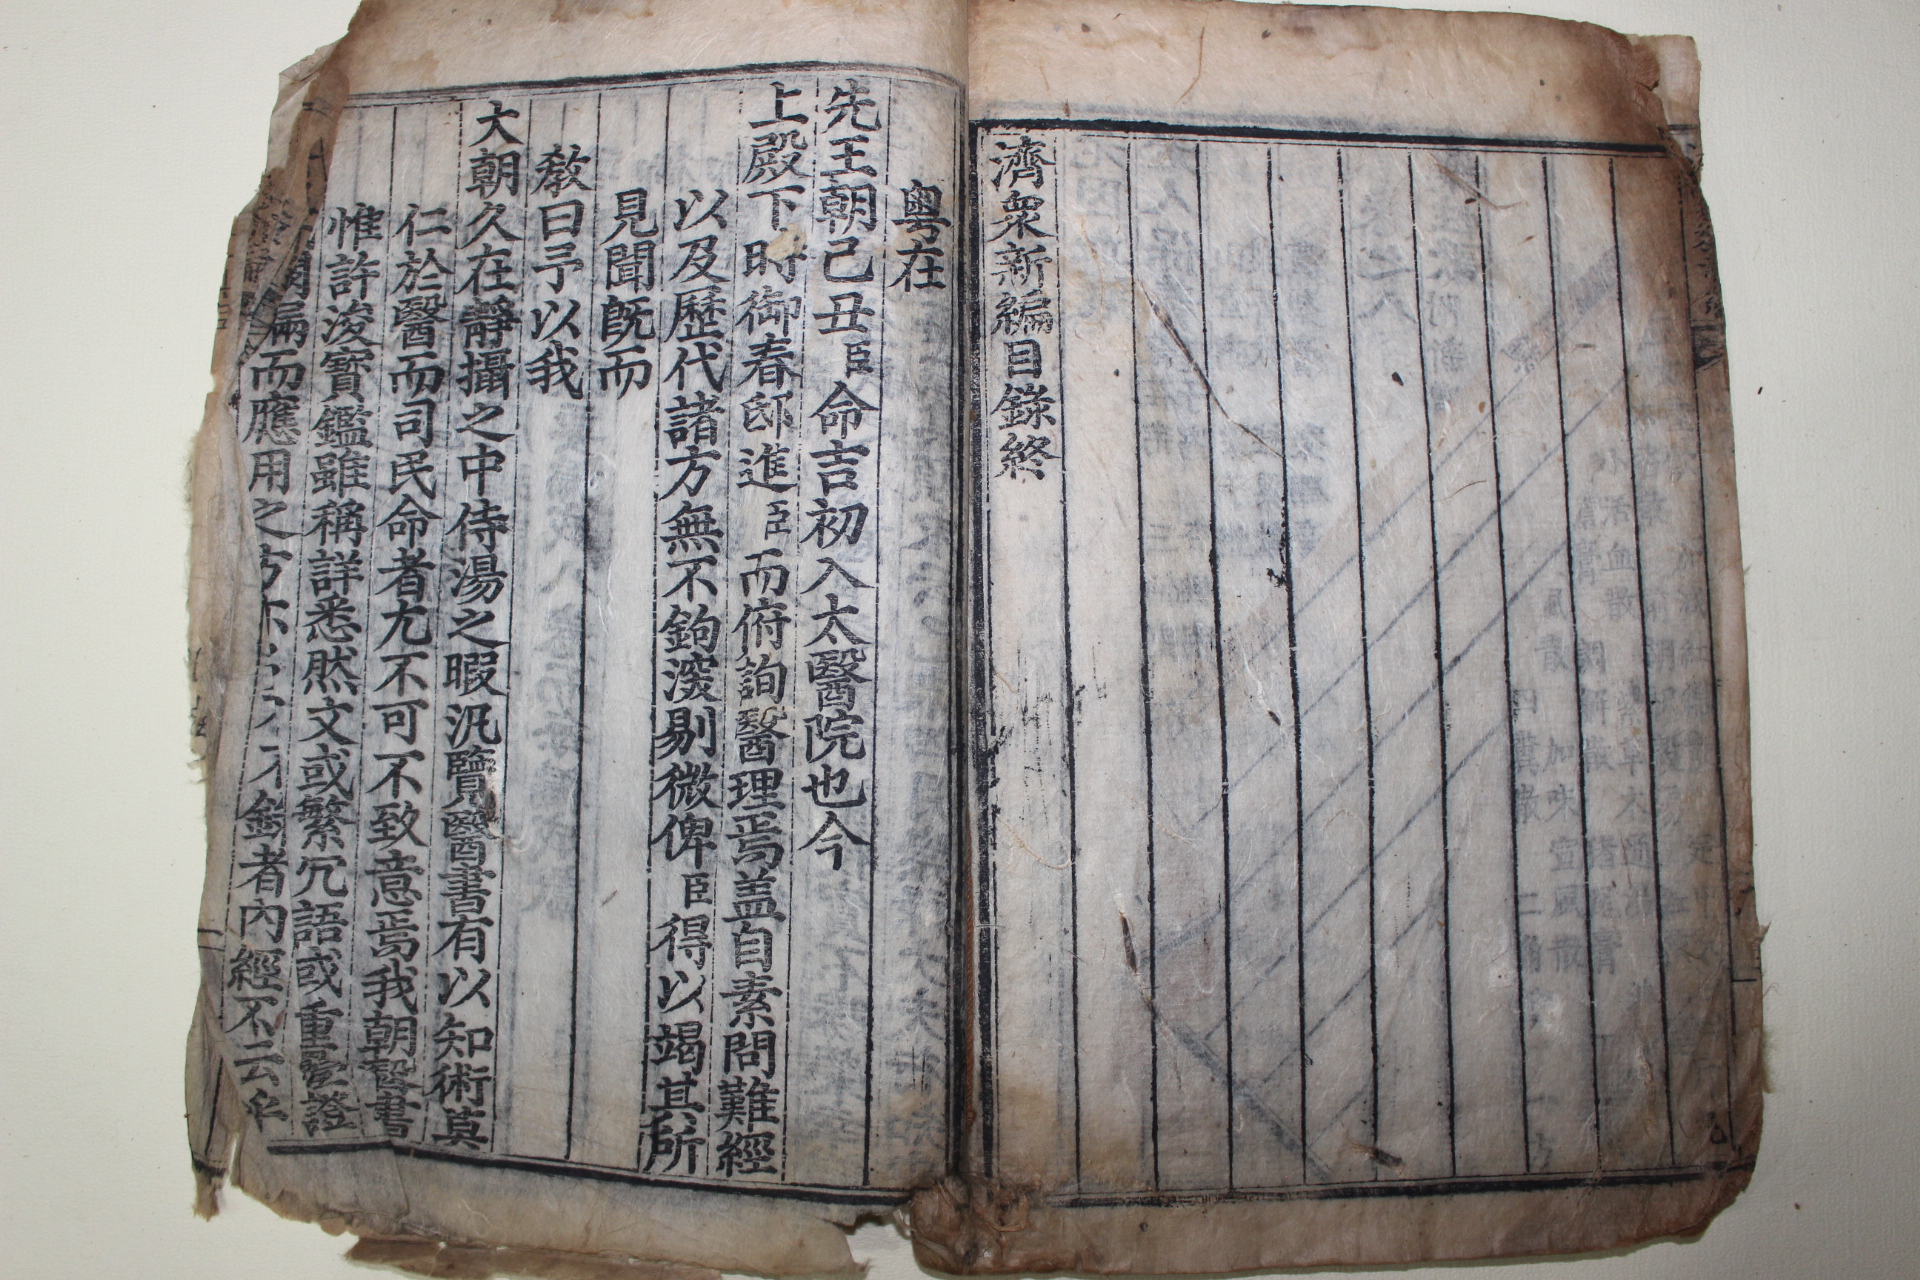 濟衆新編目錄終
粤在
先王朝己丑臣命吉初入太醫院也今
上殿下時御春邸進臣而俯詢醫理焉盖自素問難經
以及歷代諸方無不鉤深剔微俾臣得以竭其所
見聞旣而
敎曰予以我
大朝久在靜攝之中侍湯之暇汎覽醫書有以知術莫
仁於醫而司民命者尤不可不致意焉我朝醫書
惟許浚寶鑑雖稱詳悉然文或繁冗語或重疊證
而應用之方亦者內經不云乎